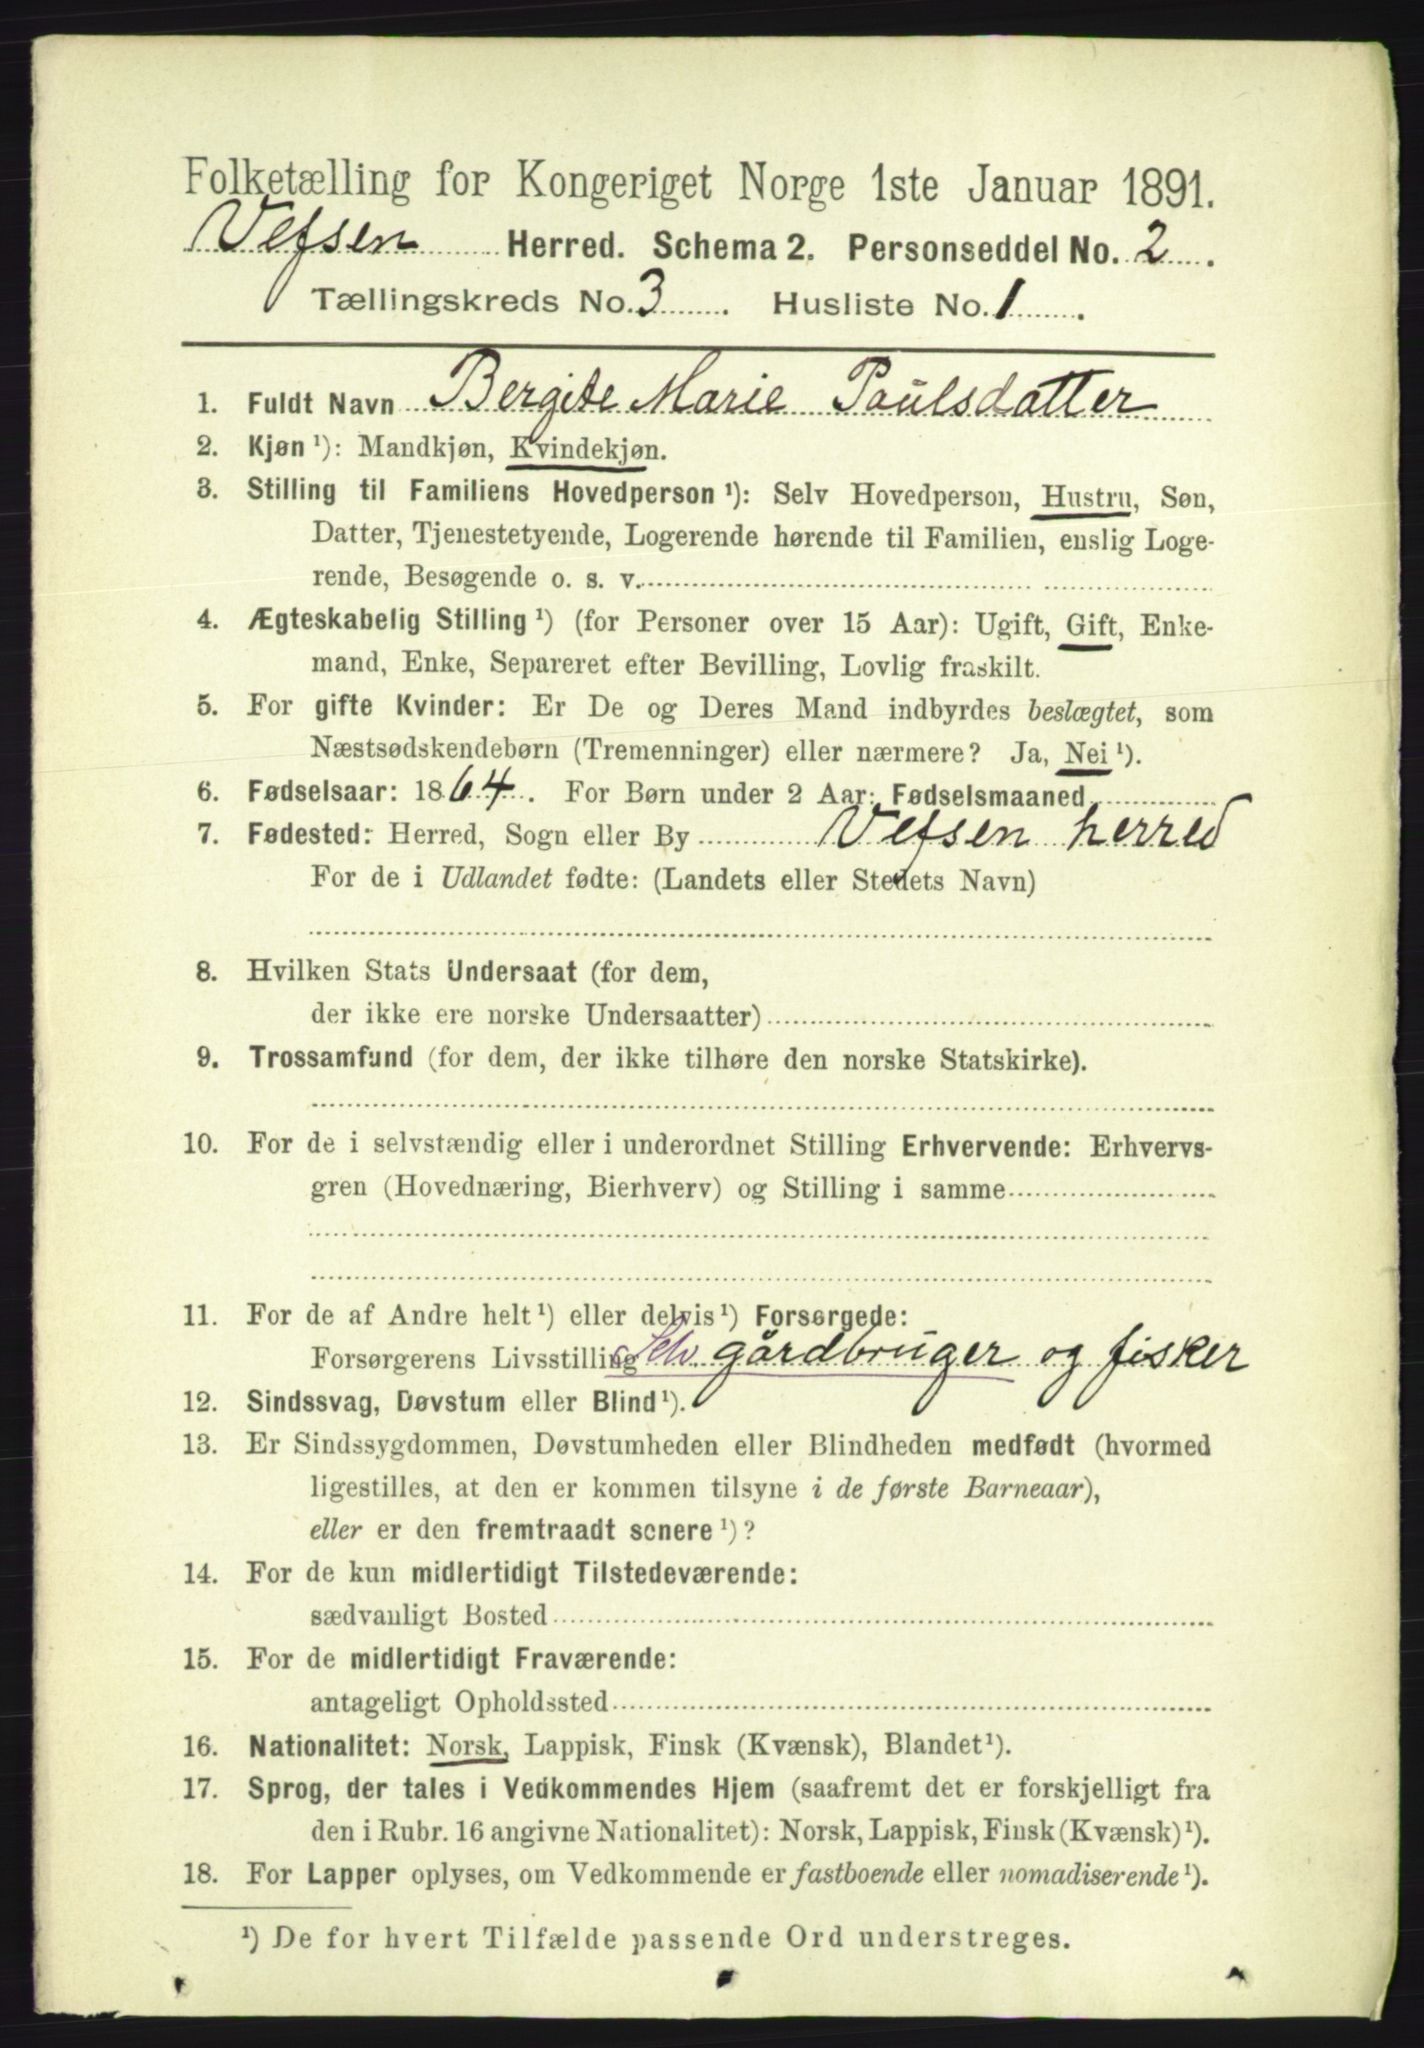 Folketælling for Kongeriget Norge 1ste Januar 1891.
Vefsen Herred. Schema 2. Personseddel No. 2.
Tællingskreds No. 3. Husliste No. 1.
1. Fuldt Navn Bergite Marie Paulsdatter
2. Kjøn ¹): Mandkjøn, Kvindekjøn.
3. Stilling til Familiens Hovedperson ¹): Selv Hovedperson, Hustru, Søn,
Datter, Tjenestetyende, Logerende hørende til Familien, enslig Loge-
rende, Besøgende o. s. v.
4. Ægteskabelig Stilling ¹) (for Personer over 15 Aar): Ugift, Gift, Enke-
mand, Enke, Separeret efter Bevilling, Lovlig fraskilt.
5. For gifte Kvinder: Er De og Deres Mand indbyrdes beslægtet, som
Næstsødskendebørn (Tremenninger) eller nærmere? Ja, Nei ¹).
6. Fødselsaar: 1864. For Børn under 2 Aar: Fødselsmaaned
7. Fødested: Herred, Sogn eller By Vefsen herred
For de i Udlandet fødte: (Landets eller Stedets Navn)
8. Hvilken Stats Undersaat (for dem,
der ikke ere norske Undersaatter)
9. Trossamfund (for dem, der ikke tilhøre den norske Statskirke).
10. For de i selvstændig eller i underordnet Stilling Erhvervende: Erhvervs-
gren (Hovednæring, Bierhverv) og Stilling i samme
11. For de af Andre helt ¹) eller delvis ¹) Forsørgede:
Forsørgerens Livsstilling Selv gårdbruger og fisker
12. Sindssvag, Døvstum eller Blind ¹).
13. Er Sindssygdommen, Døvstumheden eller Blindheden medfødt (hvormed
ligestilles, at den er kommen tilsyne i de første Barneaar),
eller er den fremtraadt senere ¹)?
14. For de kun midlertidigt Tilstedeværende:
sædvanligt Bosted
15. For de midlertidigt Fraværende:
antageligt Opholdssted
16. Nationalitet: Norsk, Lappisk, Finsk (Kvænsk), Blandet ¹).
17. Sprog, der tales i Vedkommendes Hjem (saafremt det er forskjelligt fra
den i Rubr. 16 angivne Nationalitet): Norsk, Lappisk, Finsk (Kvænsk) ¹).
18. For Lapper oplyses, om Vedkommende er fastboende eller nomadiserende ¹).
¹) De for hvert Tilfælde passende Ord understreges.